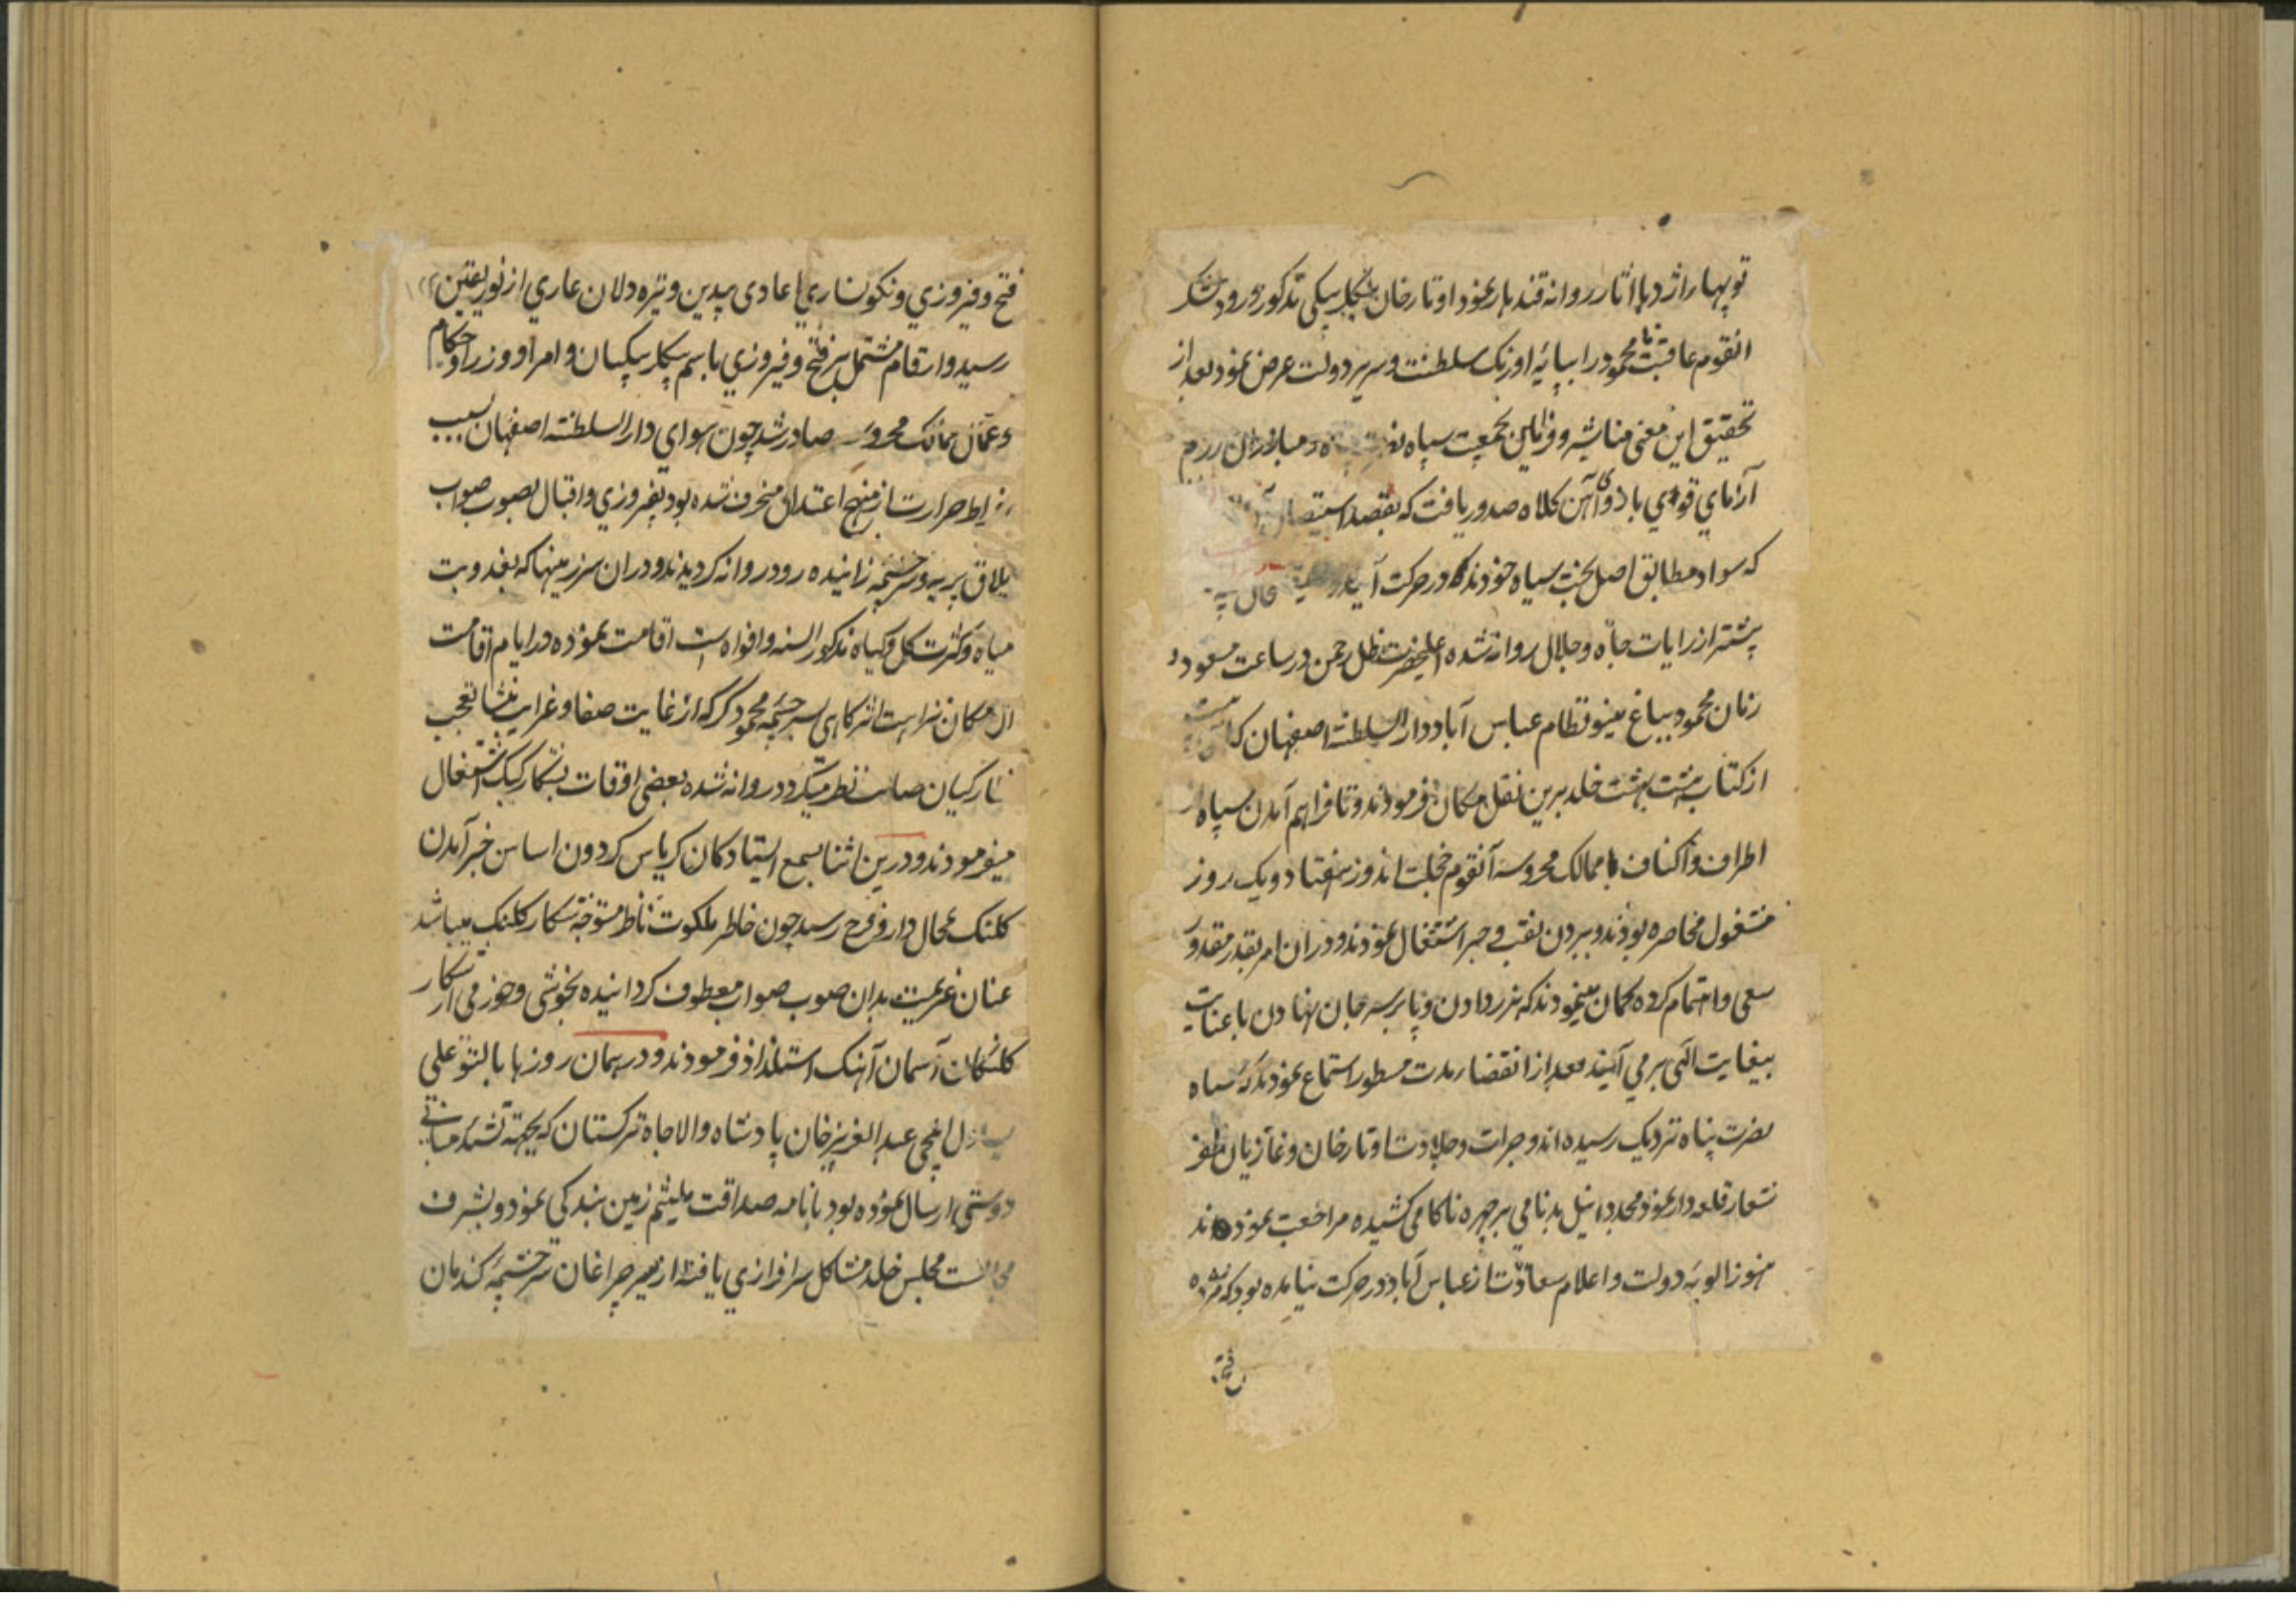 توپهار اژدها اثار روانه قندهار نمود اوتارخان بیکلربیکی مذکور ورود لشکر
انقوم عاقبت نا محمود را بپایه اورنک سلطنت و سریر دولت عرض نمود بعد از
تحقیق این معنی مناشیر و فرامین بجمعیت سپاه و مبارزان رزم
آزمای قوی بازوی آهن کلاه صدور یافت که بقصد استیصال
که سواد مطابق اصل بخت سیاه خودند در حرکت آیند
پیشتر از رایات جاه و جلال روانه شده اعلیحضرت ظل رحمن در ساعت مسعود و
زمان محمود بباغ مینو نظام عباس آباد دار السلطنه اصفهان که
از کتاب هشت بهشت خلد برین نقل مکان فرمودند و تا فراهم آمدن سپاه از
اطراف و اکناف ممالک محروسه آنقوم خجلت اندوز هفتاد و یک روز
مشغول محاصره بودند و ببردن نقب و جبر اشتغال نمودند و دران امر بقدر مقدور
سعی و اهتمام کرده کمان مینمودند که بزر دادن و پا بر سر جان نهادن با عنایت
بیغایت الهی بر می آیند بعد از انقضاء مدت مسطور استماع نمودند که سپاه
نصرت پناه نزدیک رسیده اند و جرات و جلادت اوتارخان و غازیان ظفر
شعار قلعه دار نمود مجددا نیل بدنامی بر چهره ناکامی کشیده مراجعت نمودند
هنوز الویه دولت و اعلام سعادت از عباس آباد در حرکت نیامده بود که مژده
فتح
فتح و فیروزی و نکونساری اعادی بیدین و تیره دلان عاری از نور یقین
رسید و ارقام مشتمل بر فتح و فیروزی باسم بیکلربیکیان و امرا و وزرا و حکام
و عمال ممالک محروسه صادر شد چون هوای دار السلطنه اصفهان بسبب
افراط حرارت از منهج اعتدال منحرف شده بود بفیروزی و اقبال بصوب صواب
یلاق پریه و سرچشمه زاینده رود روانه کردیدند و دران سرزمینها که بعذوبت
میاه و کثرت کل و کیاه مذکور السنه و افواه است اقامت نموده در ایام اقامت
ان مکان نزاهت اثر کاهی بسرچشمه محمود کر که از غایت صفا و غرابت منشا تعجب
نظارکیان صاحب نظر میکردد روانه شده بعضی اوقات بشکار کبک اشتغال
میفرمودند و درین اثنا بسمع ایستادکان کریاس کردون اساس خبر آمدن
کلنک بمحال دار و فرح رسید چون خاطر ملکوت ناظر متوجه شکار کلنک میباشد
عنان عزیمت بدان صوب صواب معطوف کردانیده بخوشی و خرمی از شکار
کلنکان آسمان آهنک استلذاذ فرمودند و در همان روزها بالتو علی
یساول ایلچی عبدالعزیز خان پادشاه والا جاه ترکستان که بجهة تشیید مبانی
دوستی ارسال نموده بود با نامه صداقت ملیثم زمین بندکی نمود و بشرف
مجالست مجلس خلد مشاکل سرافرازی یافته از سیر چراغان سرچشمه کندمان